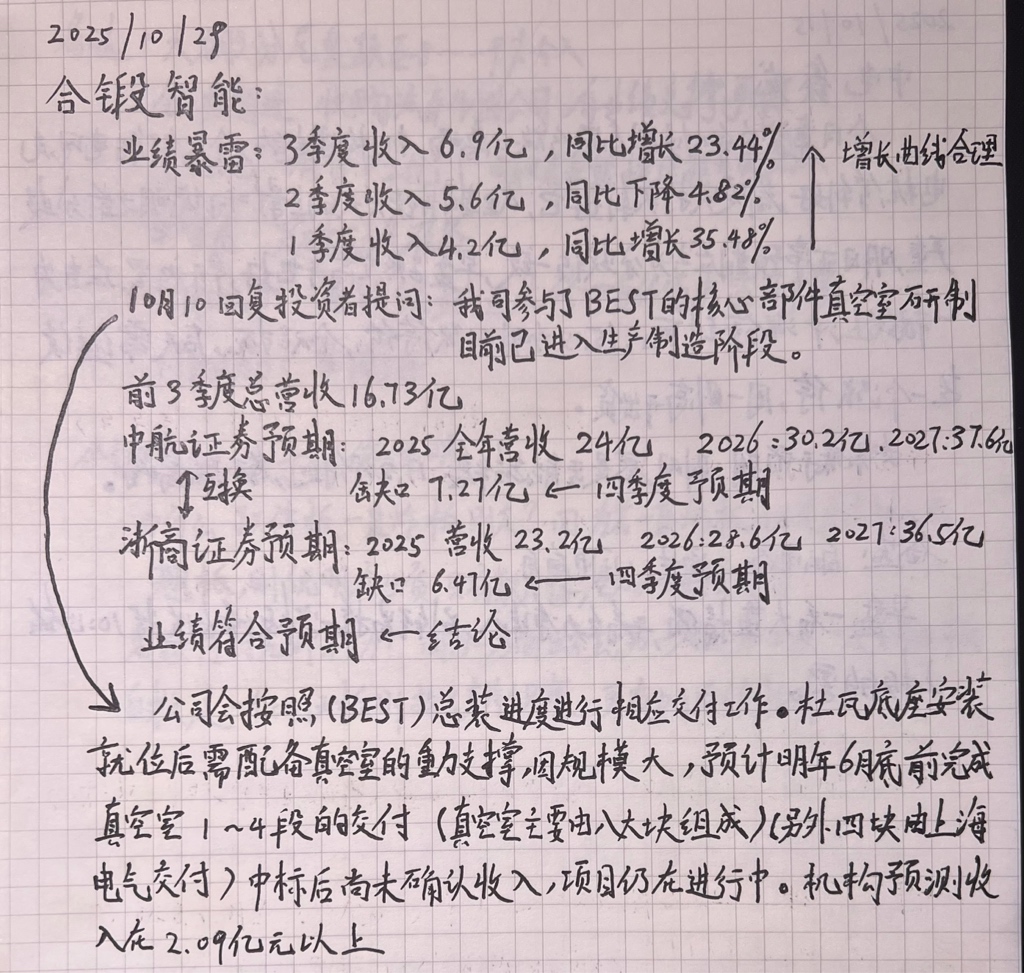 2025/10/29
合锻智能:
业绩暴雷: 3季度收入6.9亿,同比增长23.44% ↑ 增长曲线合理
2季度收入5.6亿,同比下降4.82%
1季度收入4.2亿,同比增长35.48%
10月10回复投资者提问: 我司参与了BEST的核心部件真空室研制
目前已进入生产制造阶段。
前3季度总营收16.73亿
中航证券预期: 2025全年营收24亿 2026:30.2亿.2027:37.6亿
↕互换 缺口7.27亿 ← 四季度预期
浙商证券预期: 2025 营收23.2亿 2026:28.6亿 2027:36.5亿
缺口 6.47亿 ← 四季度预期
业绩符合预期 ← 结论
公司会按照(BEST)总装进度进行相应交付工作。杜瓦底座安装
就位后需配备真空室的重力支撑,因规模大,预计明年6月底前完成
真空室1~4段的交付(真空室主要由八大块组成)(另外四块由上海
电气交付)中标后尚未确认收入,项目仍在进行中。机构预测收
入在2.09亿元以上